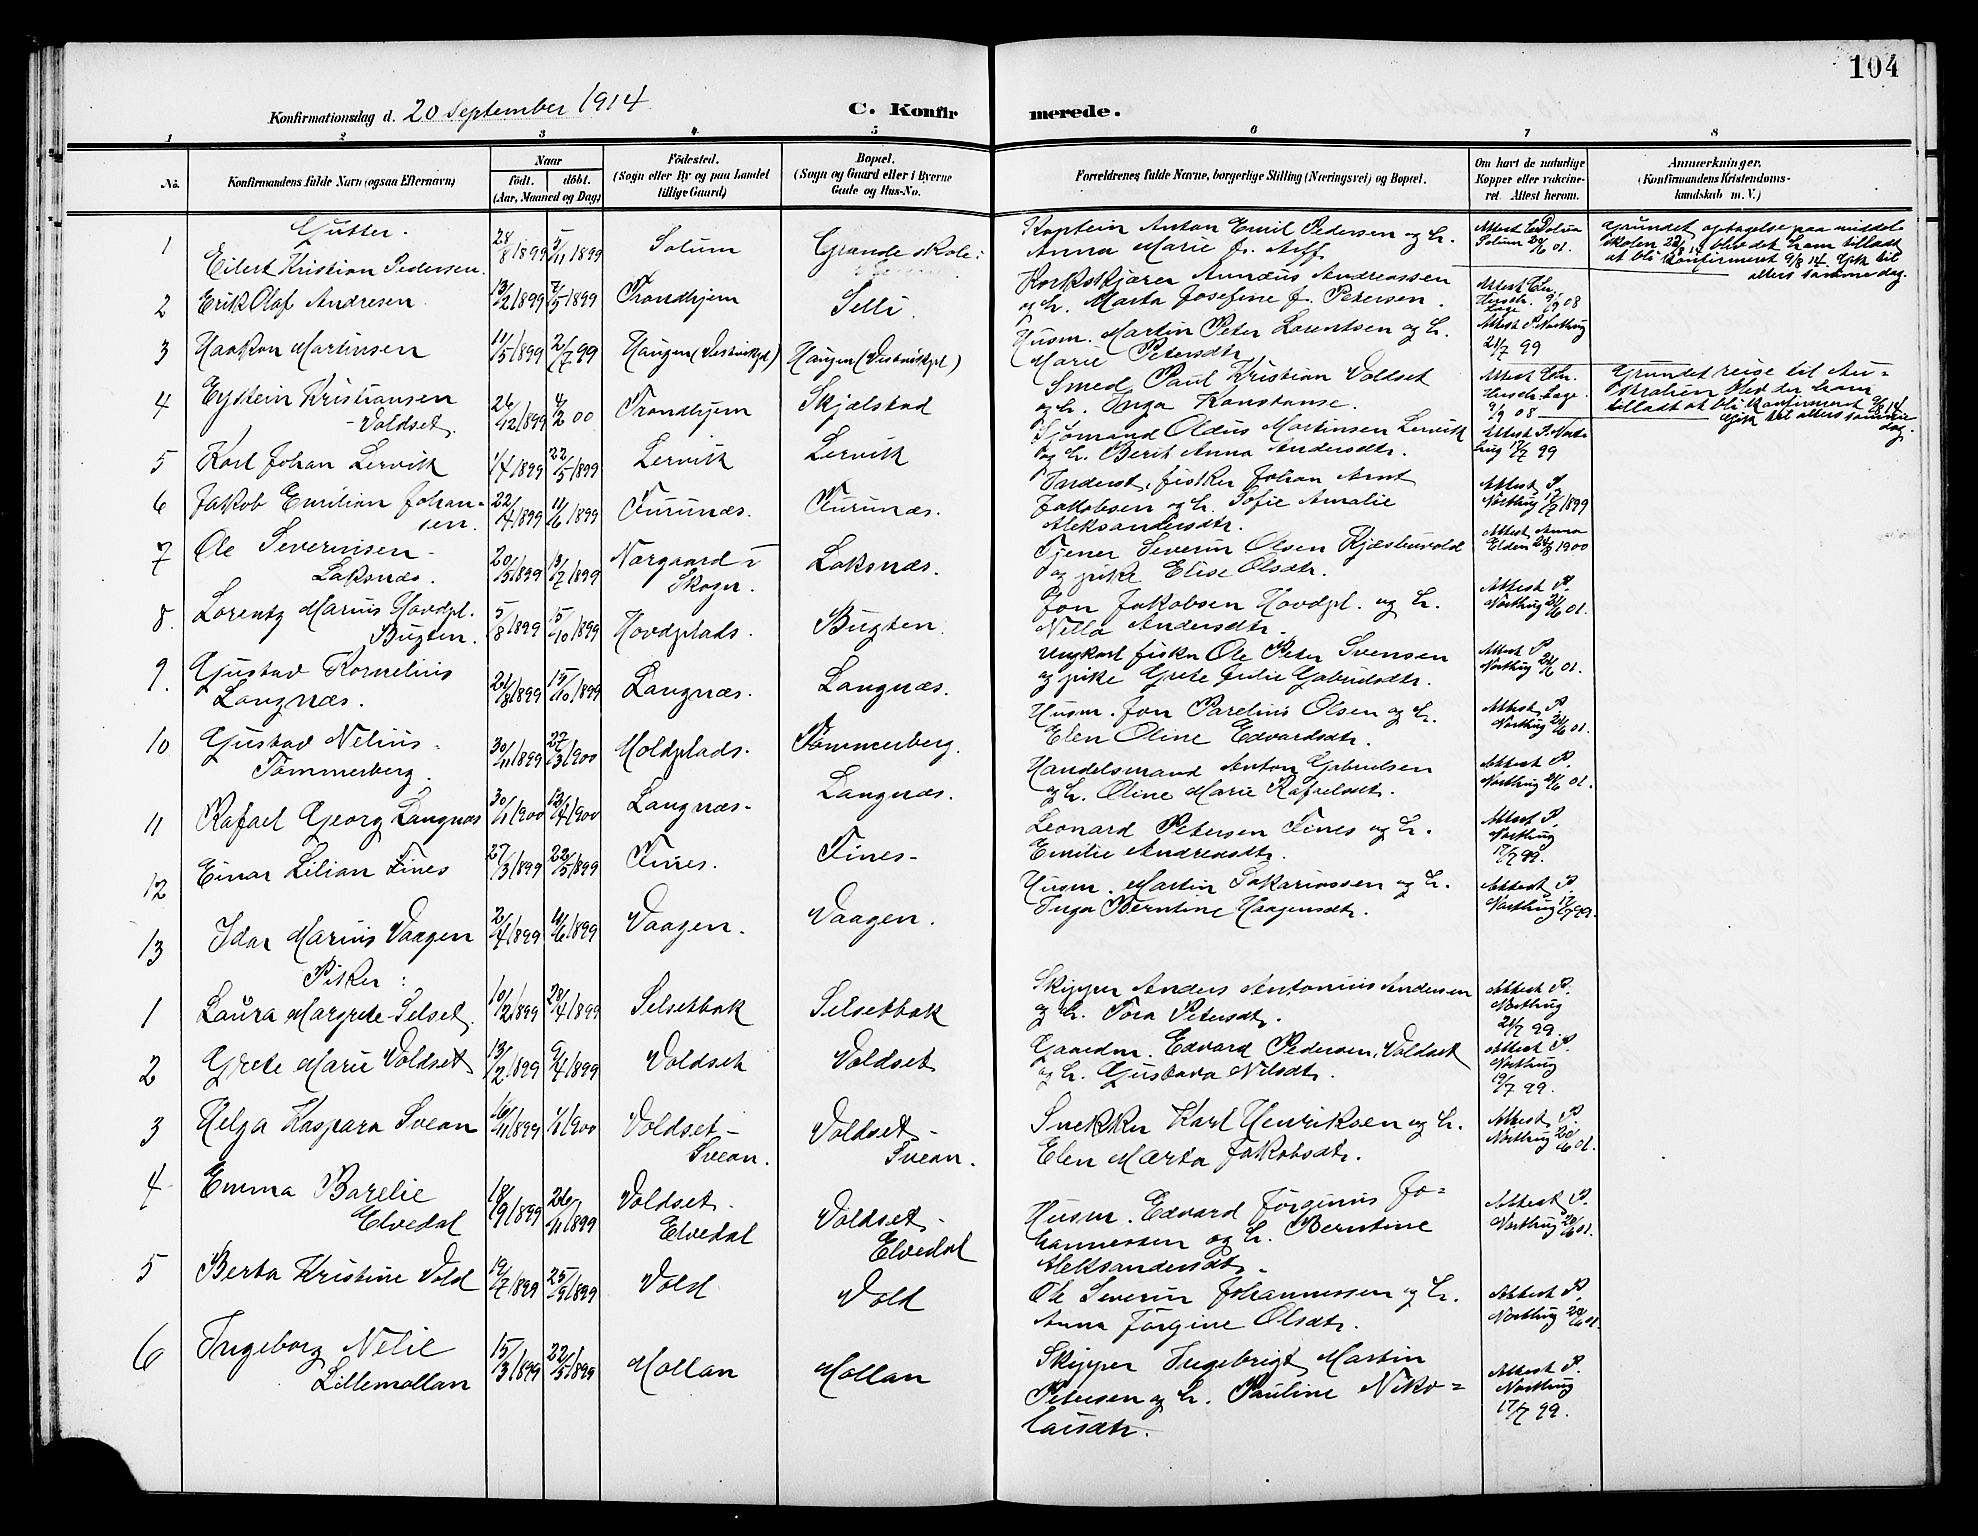 104
Konfirmationsdag d. 20 September 1914
C. Konfirmerede.
1 2 3 4 5 6 7 8
No.
Konfirmandens fulde Navn (ogsaa Efternavn)
Naar
født. døbt.
(Aar, Maaned og Dag)
Födested.
(Sogn eller By og paa Landet
tillige Gaard)
Bopæl.
(Sogn og Gaard eller i Byerne
Gade og Hus-No.
Forældrenes fulde Navne, borgerlige Stilling (Næringsvei) og Bopæl.
Om havt de naturlige
Kopper eller vakcine-
ret. Attest herom.
Anmærkninger.
(Konfirmandens Kristendoms-
kundskab m. V.)
Gutter.
1 Eilert Kristian Pedersen. 28/8 1899 5/11 1899 Solum Grande skole:
Kaptein Anton Emil Pedersen og h.
Anna Marie f. Aff.
Grundet optagelse paa middel
skolen blev det ham tilladt
at bli konfirmeret 9/8 14. Gik til
alters samme dag.
2 Erik Olaf Andresen. 13/2 1899 7/5 1899 Trondhjem Selli.
Korkskjærer Annæus Andreassen
og h. Marta Josefine f. Petersen.
3 Haakon Martinsen 11/5 1899 2/7 99 Haugen (Vestvikpl) Haugen (Vestvikpl)
Husm. Martin Peter Lorentsen og h.
Marie Petersdtr.
Attest P. Northug
21/7 99
4 Eystein Kristiansen
-Voldset. 26/12 1899 4/2 00 Trondhjem Skjælstad
Smed Paul Kristian Voldset
og h. Inga Konstanse.
Grundet reise til Au=
stralien blev det ham
tilladt at bli konfirmeret 9/8 14
Gik til alters samme
dag.
5 Karl Johan Lervik 1/4 1899 22/5 1899 Lervik Lervik
Sjømand Oldus Martinsen Lervik
og h. Berit Anna Andersdtr.
Attest P. Nort-
hug 17/7 99
6 Jakob Emilian Johan-
sen. 22/4 1899 11/6 1899 Furunæs. Furunæs.
Inderst, fisker Johan Arnt
Jakobsen og h. Sofie Amalie
Aleksandersdtr.
Attest P.
Northug 17/7 1899
7 Ole Severinsen-
Laksnæs. 20/5 1899 13/7 1899 Norgaard i
Skogn. Laksnæs.
Tjener Severin Olsen
og pike Elise Olsdtr.
Attest Anna
Elden 1900
8. Lorentz Marius Hovdpl.
Bugten. 5/8 1899 5/10 1899 Hovdplads. Bugten.
Jon Jakobsen Hovdpl. og h.
Nella Andersdtr.
Attest P.
Northug 01.
9. Gustav Kornelius
Langnæs. 1899 15/10 1899 Langnæs. Langnæs.
Ungkarl fisker Ole Peter Svensen
og pike Grete Julie Gabrielsdtr.
Attest P.
Northug 01.
10 Gustav Nelius
Tømmerberg. 30/11 1899 1900 Moldplads. Tømmerberg.
Husm. Jon Parelius Olsen og h.
Elen Oline Edvardsdtr.
Attest P.
Northug 01.
11 Rafael Georg Langnæs 1900 1900 Langnæs- Langnæs.
Handelsmand Anton Gabrielsen
og h. Oline Marie Rafaelsdt.
Attest P.
Northug 01.
12 Einar Lilian Fines 27/3 1899 22/5 1899 Fines. Fines-
Leonard Petersen Fines og h.
Emilie Andreasdtr.
Attest P.
Northug
17/7 99.
13 Idar Marius Vaagen 2/4 1899 11/6 1899 Vaagen. Vaagen.
Husm. Martin Sakariassen og h.
Inga Berntine Haagensdtr.
Attest P.
Northug 17/7 99.
Piker:
1 Laura Margrete Selset. 10/2 1899 1899 Selsetbak Selsetbak
Skipper Anders Antonius Andersen
og h. Tora Petersdt.
Attest P.
Northug
21/7 99.
2 Grete Marie Voldset 13/2 1899 9/4 1899 Voldset Voldset
Gaardm. Edvard Pedersen, Voldset
og h. Gustava Nilsdtr.
Attest P.
Northug
19/7 99.
3 Helga Kaspara Svean 16/11 1899 1/1 1900 Voldset-
Svean. Voldset-
Svean.
Snekker Karl Henriksen og h.
Elen Marta Jakobsdtr.
Attest P.
Northug 20/6 01.
4 Emma Barelie
Elvedal 18/9 1899 26/11 1899 Voldset-
Elvedal Voldset-
Elvedal
Husm. Edvard Jørginus Jo=
hannessen og h. Berntine
Aleksandersdtr.
Attest P.
Northug 20/6 01.
5 Berta Kristine Vold 19/7 1899 25/9 1899 Vold Vold
Ole Severin Johannessen og h.
Anna Jørgine Olsdtr.
Attest P.
Northug 20/6 01.
6 Ingeborg Nelie
Lillemollan 15/3 1899 22/5 1899 Mollan Mollan
Skipper Ingebrigt Martin
Petersen og h. Pauline Niko=
laisdtr.
Attest P.
Northug
17/7 99.